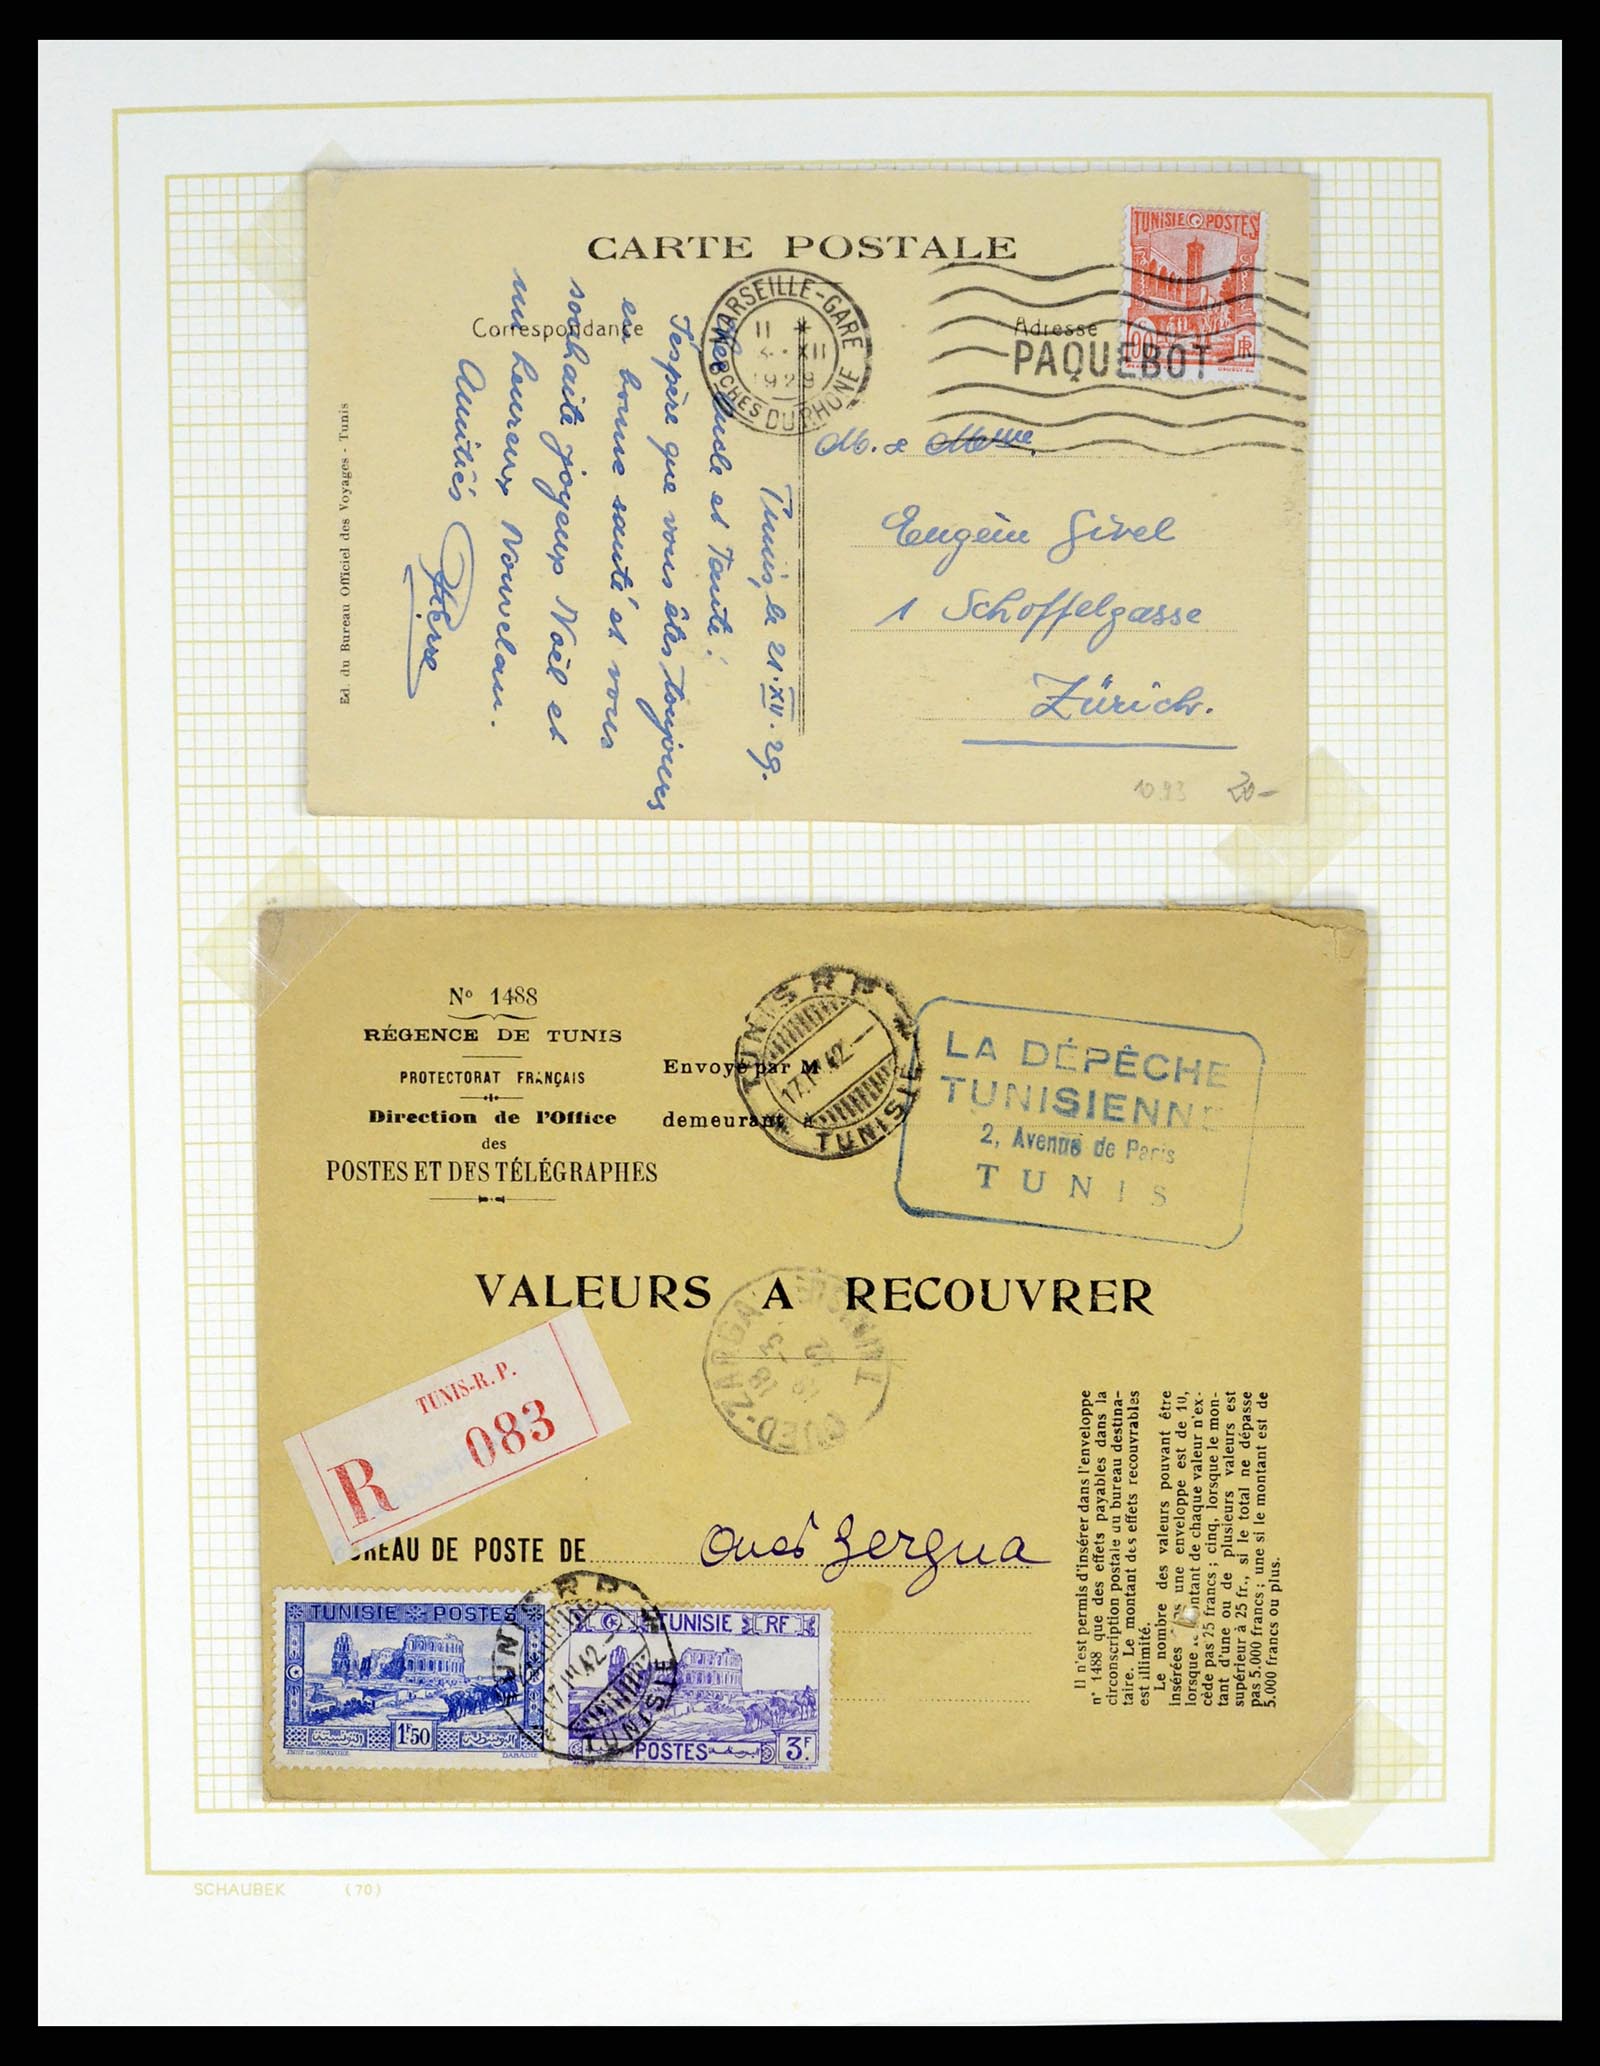 CARTE POSTALE
Correspondance
Adresse
TUNISIE POSTES
RF
MARSEILLE-GARE
11 *
XII
1929
BCHES DU RHONE
PAQUEBOT
Ed. du Bureau Officiel des Voyages - Tunis
Tunis, le 21.XII.29.
Cher Oncle et Tante!
J'espère que vous êtes toujours
en bonne santé et vous
souhaite joyeux Noël et
une heureux Nouvel an.
Amitiés Pierre
M. & Mme.
Eugéin Givel
1 Schoffelgasse
Zürich.
10.93 20-
No 1488
RÉGENCE DE TUNIS
PROTECTORAT FRANÇAIS
Direction de l'Office
des
POSTES ET DES TÉLÉGRAPHES
Envoyé par M
demeurant à
TUNIS R P
TUNISIE
LA DÉPÊCHE
TUNISIENNE
2, Avenue de Paris
TUNIS
VALEURS A RECOUVRER
OUED-ZARGA
TUNIS-R. P.
R 083
BUREAU DE POSTE DE Oued Zergua
Il n'est permis d'insérer dans l'enveloppe
n° 1488 que des effets payables dans la
circonscription postale du bureau destina-
taire. Le montant des effets recouvrables
est illimité.
Le nombre des valeurs pouvant être
insérées une enveloppe est de 10,
lorsque le montant de chaque valeur n'ex-
cède pas 25 francs ; cinq, lorsque le mon-
tant d'une ou de plusieurs valeurs est
supérieur à 25 fr., si le total ne dépasse
pas 5.000 francs ; une si le montant est de
5.000 francs ou plus.
TUNISIE POSTES
1F50
INST DE GRAVURE
DABADIE
TUNISIE RF
POSTES
3F
TUNIS R P
17 III 42
TUNISIE
SCHAUBEK (70)